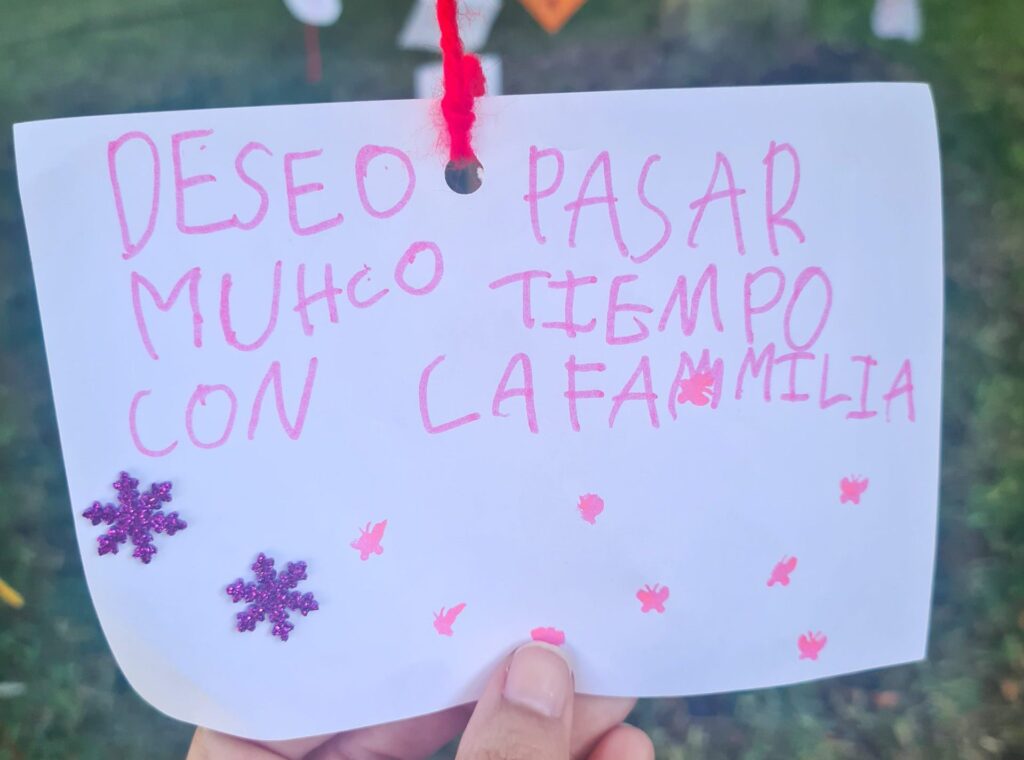 DESEO PASAR
MUHCO TIEMPO
CON LA FAMMILIA